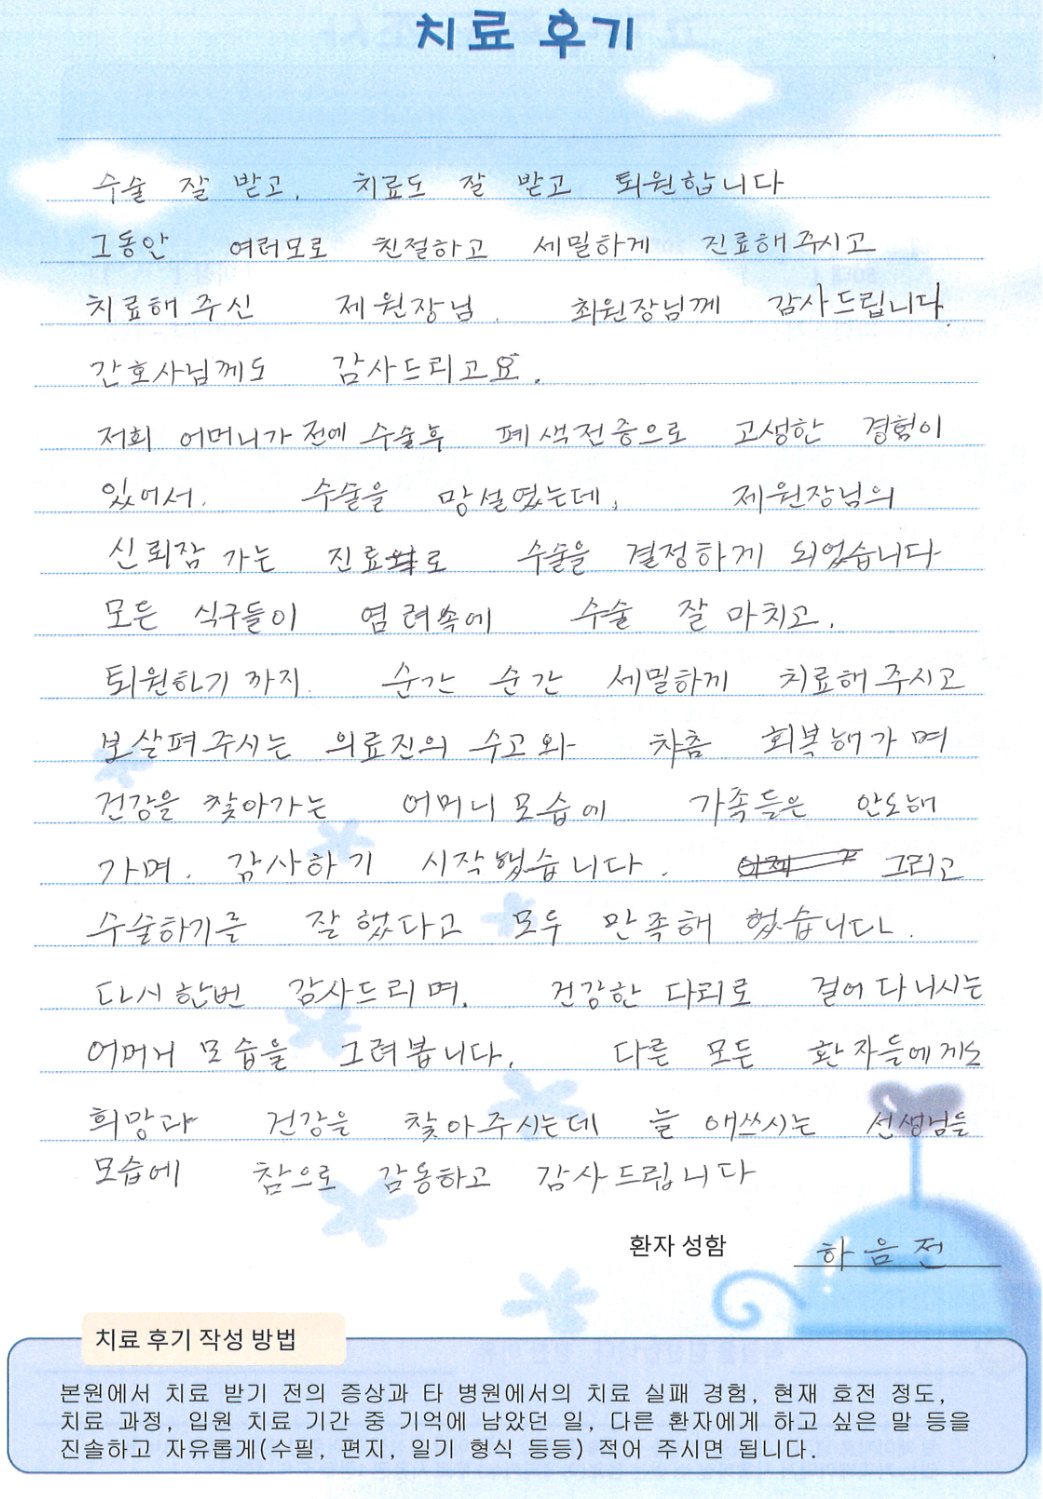 치료 후기
수술 잘 받고, 치료도 잘 받고 퇴원합니다
그동안 여러모로 친절하고 세밀하게 진료해주시고
치료해 주신 제원장님, 최원장님께 감사드립니다.
간호사님께도 감사드리고요.
저희 어머니가 전에 수술후 폐색전증으로 고생한 경험이
있어서, 수술을 망설였는데, 제원장님의
신뢰감 가는 진료로 수술을 결정하게 되었습니다
모든 식구들이 염려속에 수술 잘 마치고,
퇴원하기 까지 순간 순간 세밀하게 치료해주시고
보살펴주시는 의료진의 수고와 차츰 회복해가며
건강을 찾아가는 어머니 모습에 가족들은 안도해
가며, 감사하기 시작했습니다. 그리고
수술하기를 잘 했다고 모두 만족해 했습니다.
다시 한번 감사드리며, 건강한 다리로 걸어 다니시는
어머니 모습을 그려봅니다. 다른 모든 환자들에게도
희망과 건강을 찾아주시는데 늘 애쓰시는 선생님들
모습에 참으로 감동하고 감사드립니다
환자 성함 하음전
치료 후기 작성 방법
본원에서 치료 받기 전의 증상과 타 병원에서의 치료 실패 경험, 현재 호전 정도,
치료 과정, 입원 치료 기간 중 기억에 남았던 일, 다른 환자에게 하고 싶은 말 등을
진솔하고 자유롭게(수필, 편지, 일기 형식 등등) 적어 주시면 됩니다.